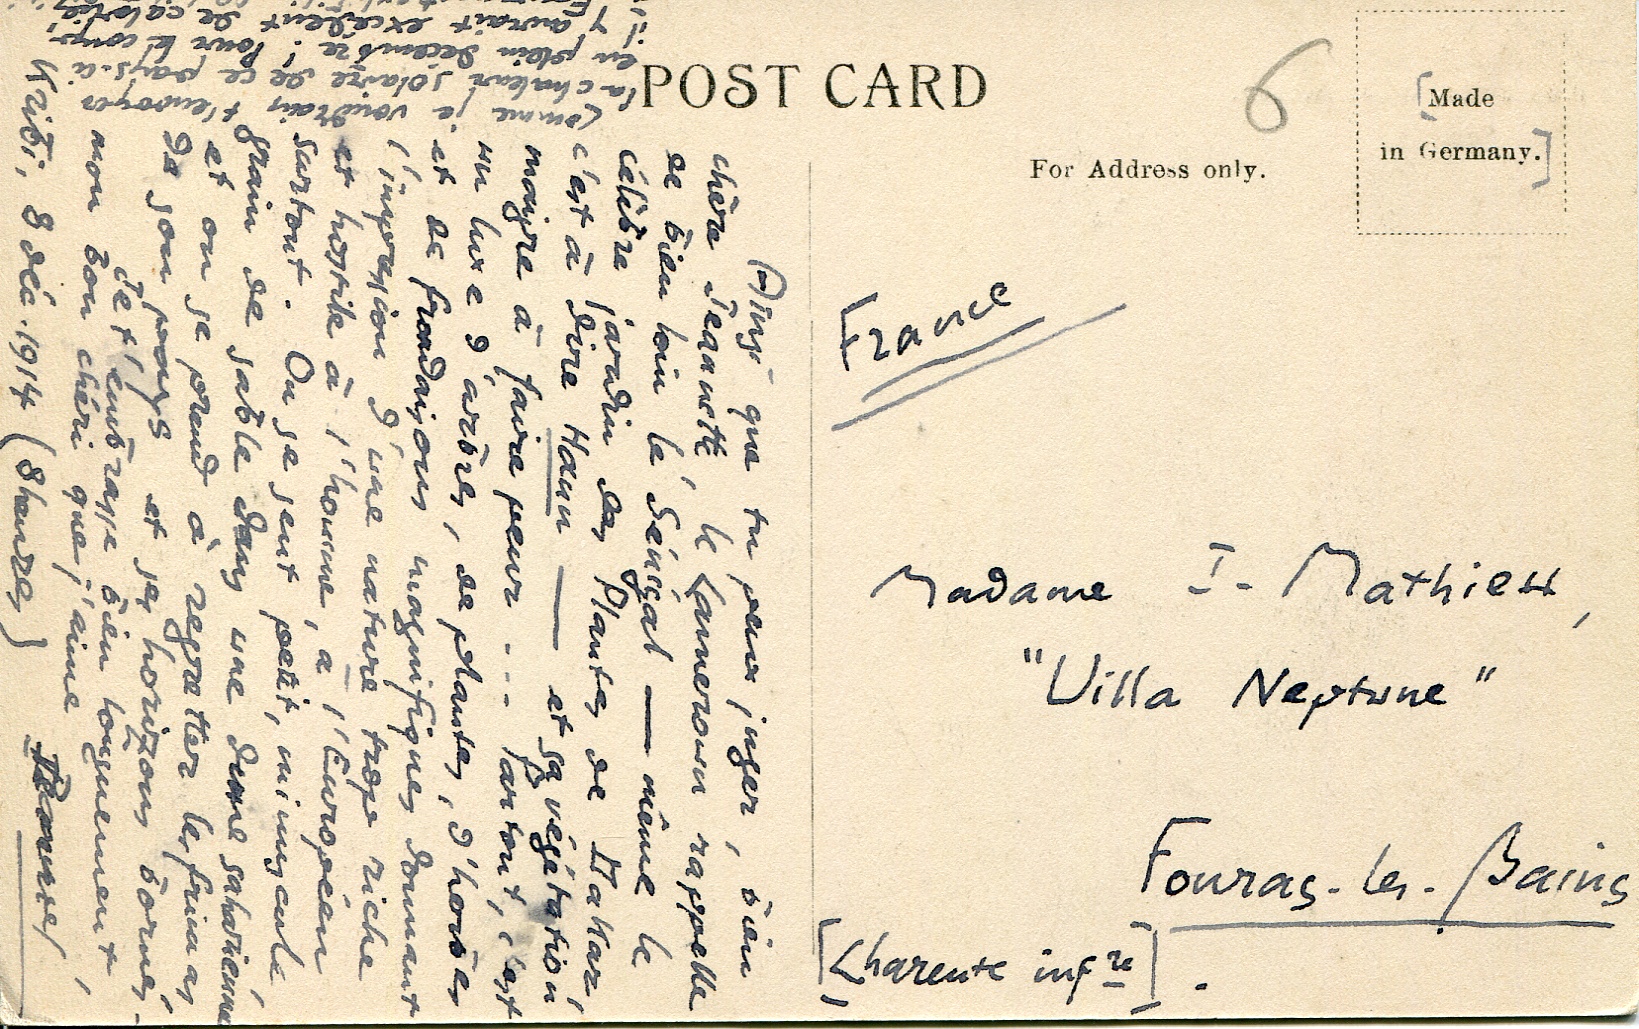 POST CARD
For Address only.
[Made
in Germany.]
6
France
Madame I. Mathieu,
"Villa Neptune"
Fouras-les-Bains
[Charente infre].
Ainsi que tu peux juger, bien
chère Jeannette, le Kameroun rappelle
de bien loin le Sénégal — même le
célèbre jardin des Plantes de Dakar,
c'est à dire Hann — et sa végétation
maigre à faire peur... Partout, c'est
un luxe d'arbres, de plantes, d'herbes
et de frondaisons magnifiques donnant
l'impression d'une nature trop riche
et hostile à l'homme, à l'Européen
surtout. On se sent petit, minuscule
grain de sable dans une dune saharienne,
et on se prend à regretter les frimas
de son pays et ses horizons bornés.
Je t'embrasse bien longuement,
mon bon chéri que j'aime
Kribi, 8 déc. 1914 (8 heures)
Comme je voudrais t'envoyer
la chaleur solaire de ce pays-ci
en plein décembre! Pour le coup,
il y aurait excédent de calories,